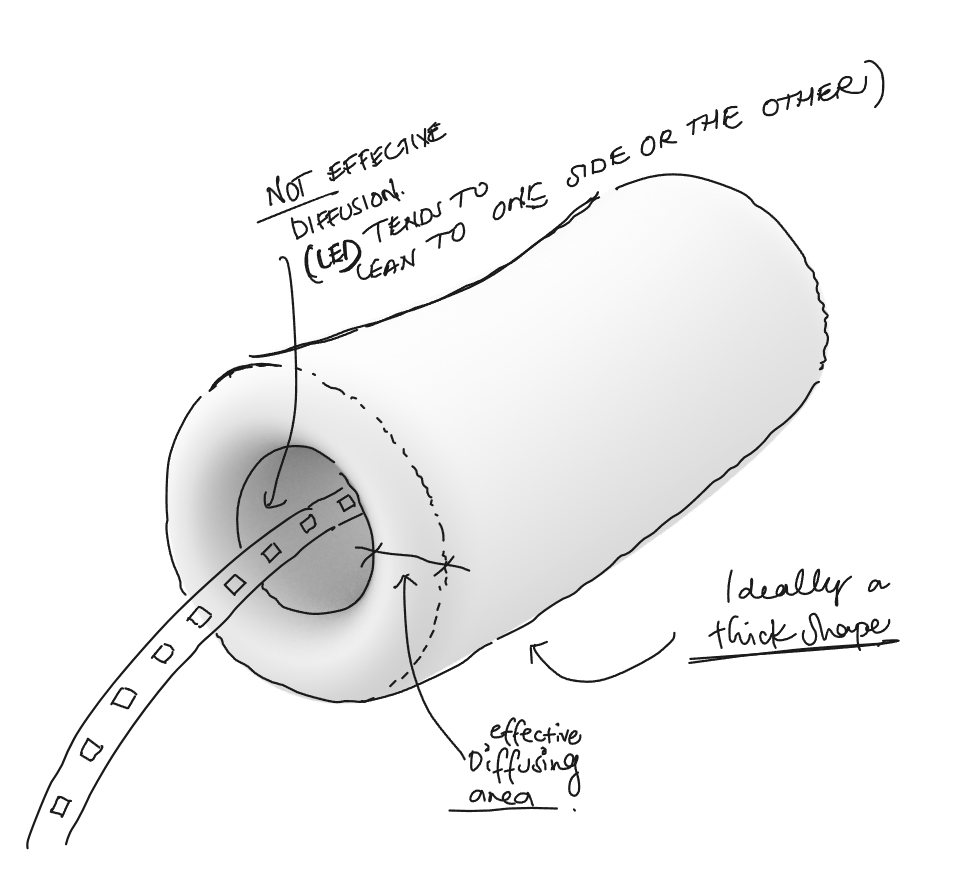 NOT EFFECTIVE
DIFFUSION.
(LED TENDS TO
LEAN TO ONE SIDE OR THE OTHER)
Ideally a
thick shape
effective
Diffusing
area.